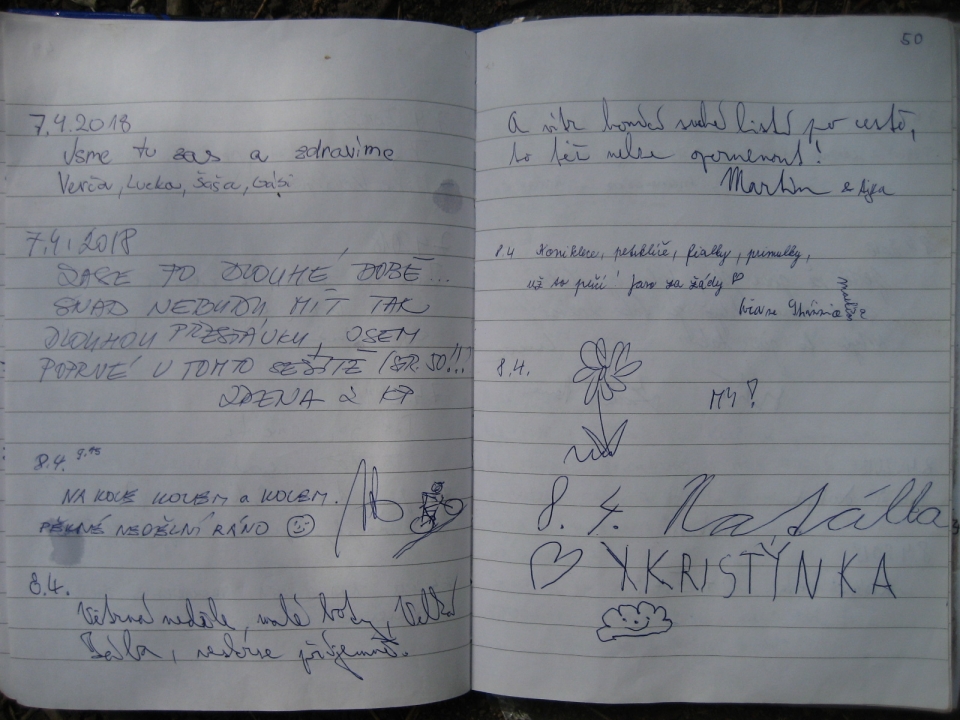 7.4.2018
Jsme tu zas a zdravíme
Verča, Lucka, Šáša, Gábi
7.4.2018
ZASE PO DLOUHÉ DOBĚ...
SNAD NEBUDU MÍT TAK
DLOUHOU PŘESTÁVKU, OSEM
POPRVÉ V TOMTO SEŠITĚ (STR. 50!!)
ZDENA Z KP
8.4. 9.45
NA KOLE KOLEM a KOLEM.
PĚKNÉ NEDĚLNÍ RÁNO
8.4.
neděle, malé boty, Velká
Bába,
50
A vítr honící suché listí po cestě,
to též nelze opomenout!
Martin &
8.4 Koniklece, petrklíče, fialky, primulky,
už to pučí! Jaro za zády
Martin
8.4.
MY!
8. 4. Natálka
KRISTÝNKA